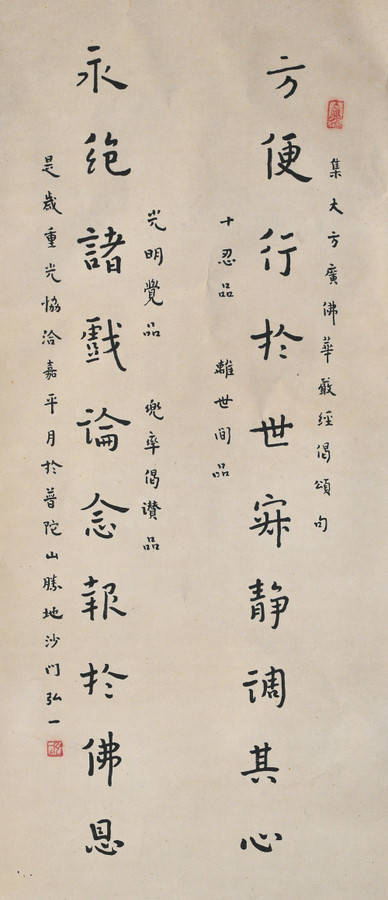 集大方廣佛華嚴經偈頌句
方便行於世寂靜調其心
十忍品 離世間品
光明覺品 兜率偈讚品
永絶諸戲論念報於佛恩
是歲重光協洽嘉平月於普陀山勝地沙门弘一